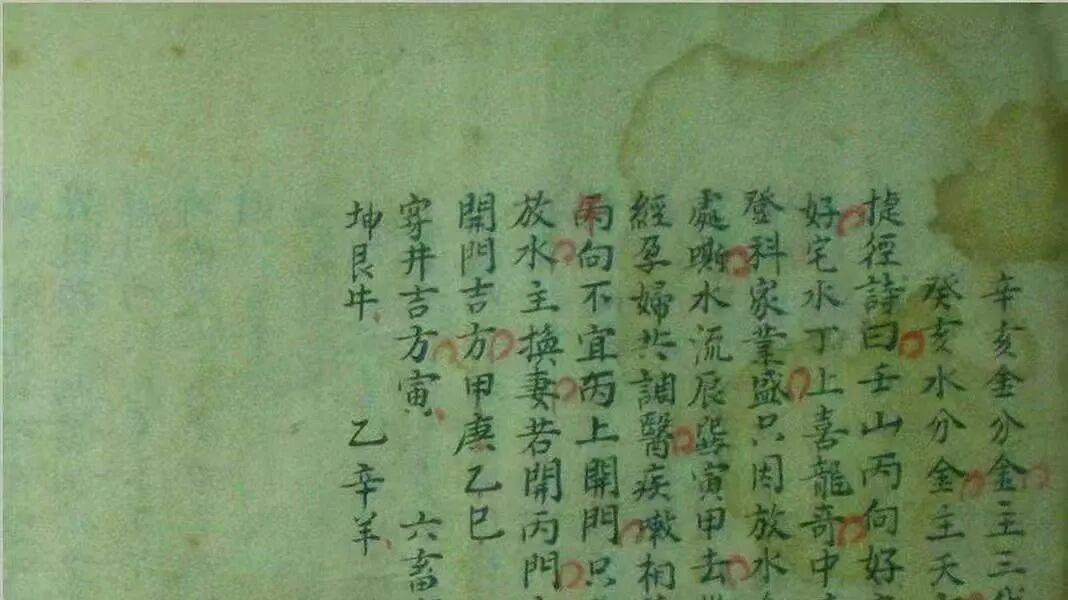 辛亥金分金主三
癸亥水分金主天
捷徑詩曰壬山丙向好
好宅水丁上喜龍奇中
登科家業盛只因放水
處嘶水流辰巽寅甲去
經孕婦共調醫疾嗽相
丙向不宜丙上開門只
放水主換妻若開丙門
開門吉方甲庚乙巳
穿井吉方寅 六畜
坤艮牛 乙辛羊